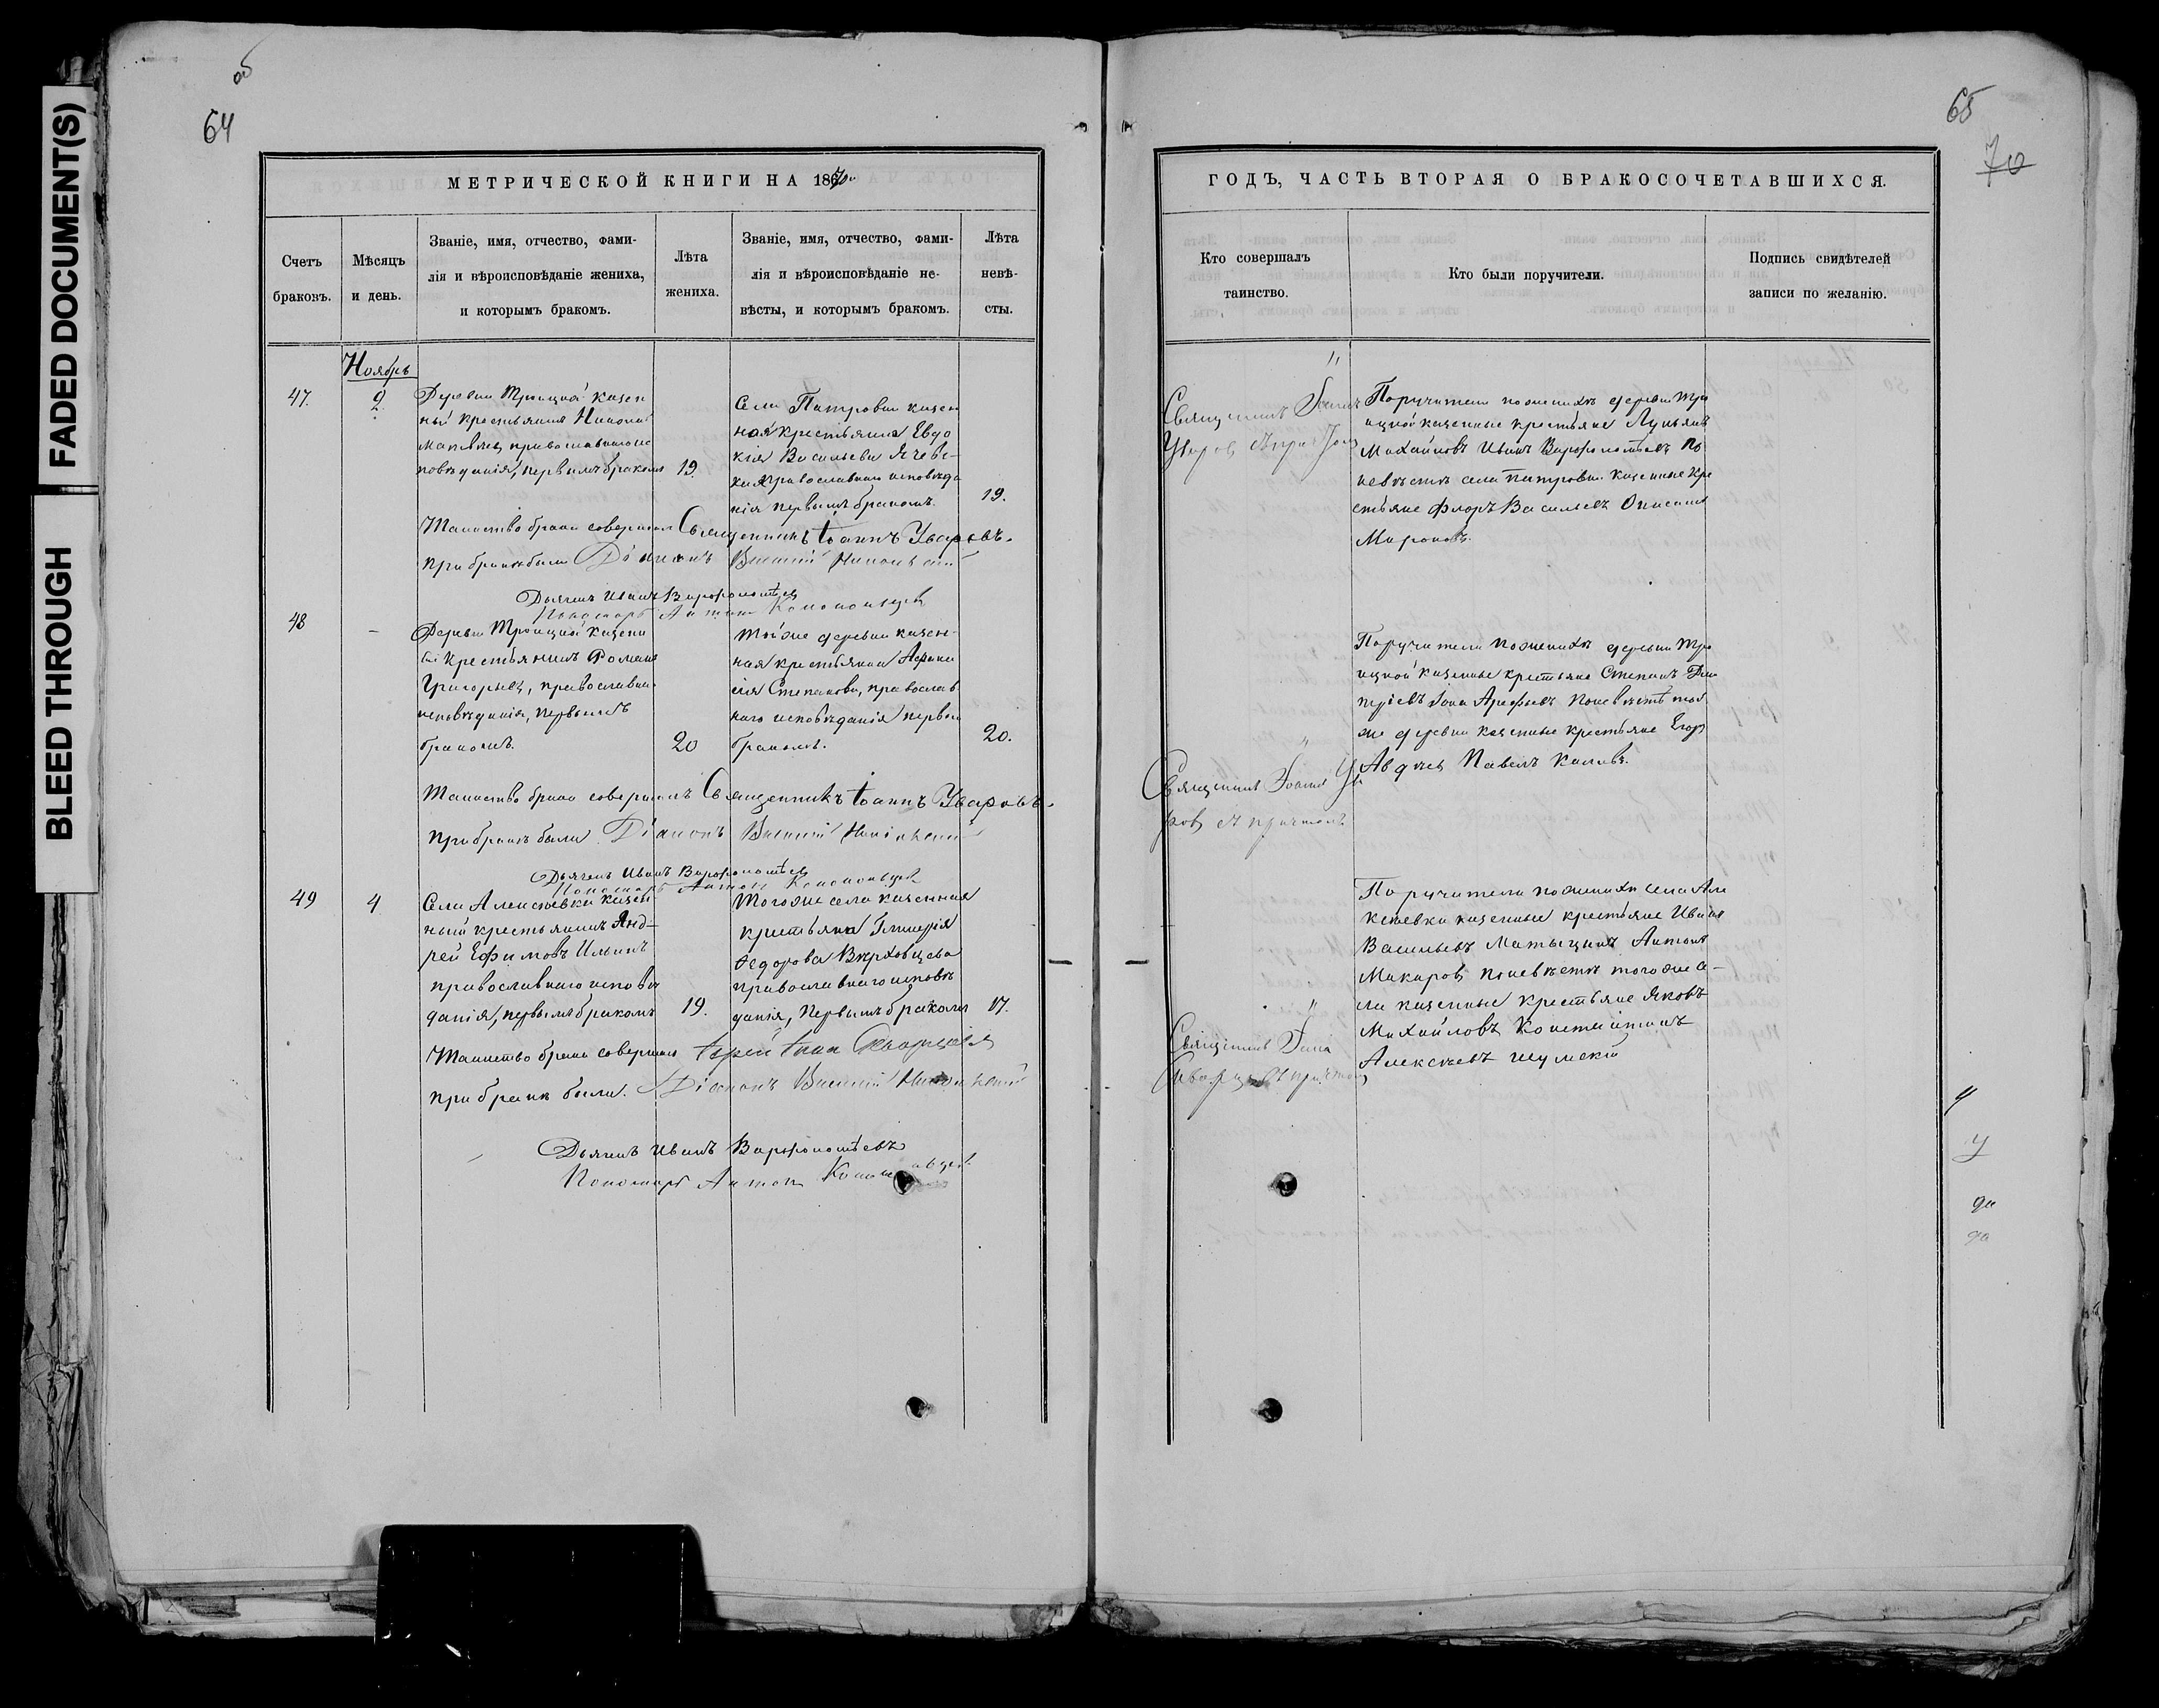 FADED DOCUMENT(S)
BLEED THROUGH
об
64
МЕТРИЧЕСКОЙ КНИГИ НА 1870
Счетъ браковъ.
Мѣсяцъ и день.
Званіе, имя, отчество, фами-
лія и вѣроисповѣданіе жениха,
и которымъ бракомъ.
Лѣта жениха.
Званіе, имя, отчество, фами-
лія и вѣроисповѣданіе не-
вѣсты, и которымъ бракомъ.
Лѣта невѣ-
сты.
Ноябрь
47.
2
Деревни Троицкой казен
ный крестьянинъ
православнаго ис
повѣданія, первымъ бракомъ
19.
Села Петровки казен
ная крестьянка Евдо
кія Васильева
православнаго исповѣда
нія первымъ бракомъ.
19.
Таинство брака совершал Священникъ Іоаннъ Уваровъ.
При бракѣ были Діаконъ Василій
Дьячекъ Иванъ Варфоломѣев
Пономарь Антон
48
–
Деревни Троицкой казенн
ый крестьянинъ Романъ
Григорьев, православнаго
исповѣданія, первымъ
бракомъ.
20
Той же деревни казен-
ная крестьянка
Степанова, православ
наго исповѣданія первым
бракомъ.
20.
Таинство брака совершилъ Священникъ Іоаннъ Уваровъ.
При бракѣ были Діаконъ Василій
Дьячекъ Иванъ Варфоломѣев
Пономарь Антон
49
4
Села Алексѣевки казен
ный крестьянинъ Анд-
рей Ефимовъ Ильинъ
православнаго исповѣ
данія, первымъ бракомъ
19.
Того же села казенная
крестьянка Гликерія
Федорова Верховцева
православнаго исповѣ
данія, первымъ бракомъ
17.
Таинство брака совершил Іерей Іоан
При бракѣ были. Діаконъ Василій
Дьячекъ Иванъ Варфоломѣевъ
Пономарь Антон
65
70
ГОДЪ, ЧАСТЬ ВТОРАЯ О БРАКОСОЧЕТАВШИХСЯ.
Кто совершалъ
таинство.
Кто были поручители.
Подпись свидѣтелей
записи по желанію.
Священникъ Іоаннъ
Уваров
Поручители по женихѣ деревни Тро
ицкой казенные крестьяне Лукьянъ
Михайловъ Иванъ Варфоломѣевъ По
невѣстѣ села Петровки казенные кре
стьяне Флоръ Васильевъ
Мироновъ.
Священникъ Іоаннъ Ува
ров съ причтомъ
Поручители по женихѣ деревни Тро
ицкой казенные крестьяне Степанъ
Іона Арефьевъ По невѣстѣ той
же деревни казенные крестьяне Егор
Авдѣев Павелъ
Священникъ Іоан
причтом
Поручители по женихѣ села Але
ксѣевки казенные крестьяне Иванъ
Васильевъ Матыцинъ Антонъ
Макаров, по невѣстѣ того же се-
ла казенные крестьяне Яковъ
Михайловъ Константинъ
Алексѣевъ Шумскій